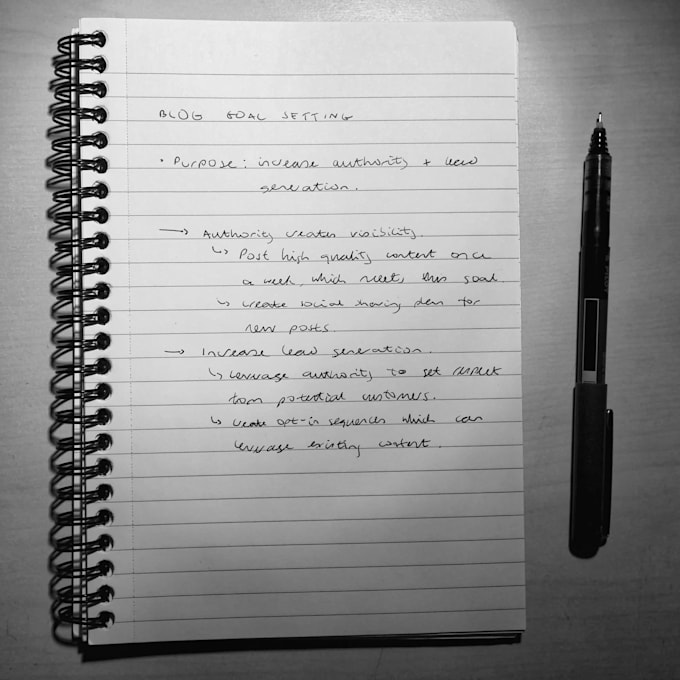 BLOG GOAL SETTING
• Purpose: increase authority + lead
generation.
→ Authority creates visibility.
↳ Post high quality content once
a week, which meets this goal.
↳ create social sharing plan for
new posts.
→ Increase lead generation.
↳ leverage authority to get respect
from potential customers.
↳ create opt-in sequences which can
leverage existing content.